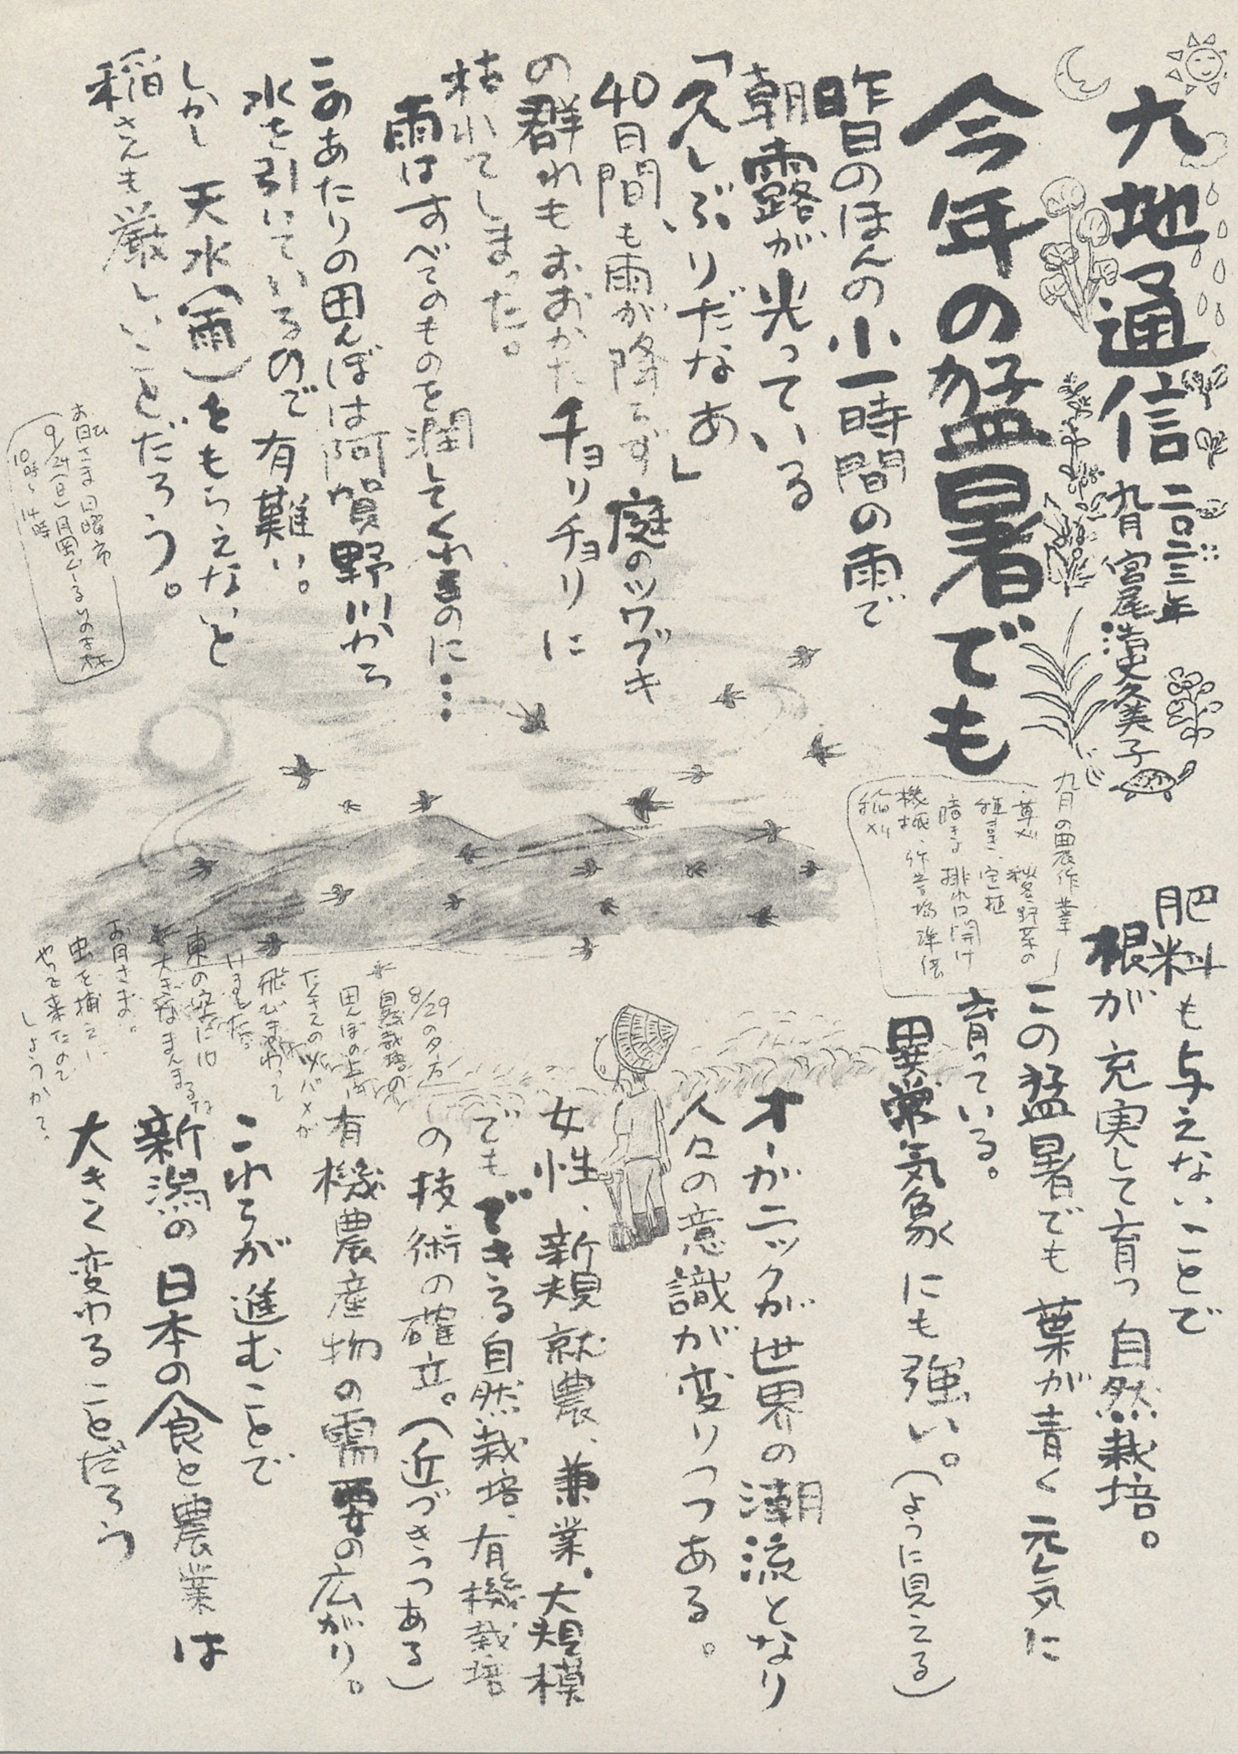 大地通信
二〇二三年
九月 宮尾浩史 久美子
今年の猛暑でも
昨日のほんの小一時間の雨で
朝露が光っている
「久しぶりだなあ」
40日間も雨が降らず 庭のツワブキ
の群れもおおかたチョリチョリに
枯れてしまった。
雨はすべてのものを潤してくれるのに…
このあたりの田んぼは阿賀野川から
水を引いているので 有難い。
しかし 天水(雨)をもらえないと
稲さんも厳しいことだろう。
お山さま 日曜市
9/24(日)月岡
10時~14時
九月の農作業
・草刈 秋冬野菜の
種まき、定植
暗きょ排水口開け
機械、作業場準備
稲刈り
肥料も与えないことで
根が充実して育つ 自然栽培。
この猛暑でも 葉が青く 元気に
育っている。
異常気象にも強い。(ように見える)
オーガニックが世界の潮流となり
人々の意識が変りつつある。
女性、新規就農、兼業、大規模
でもできる自然栽培、有機栽培
の技術の確立。(近づきつつある)
有機農産物の需要の広がり。
これらが進むことで
新潟の 日本の食と農業は
大きく変わることだろう
8/29の夕方
自然栽培の
田んぼの上を
たくさんのツバメが
飛びまわって
いました。
東の空には
大きなまんまるな
お月さま。
虫を捕えに
やって来たので
しょうかて。